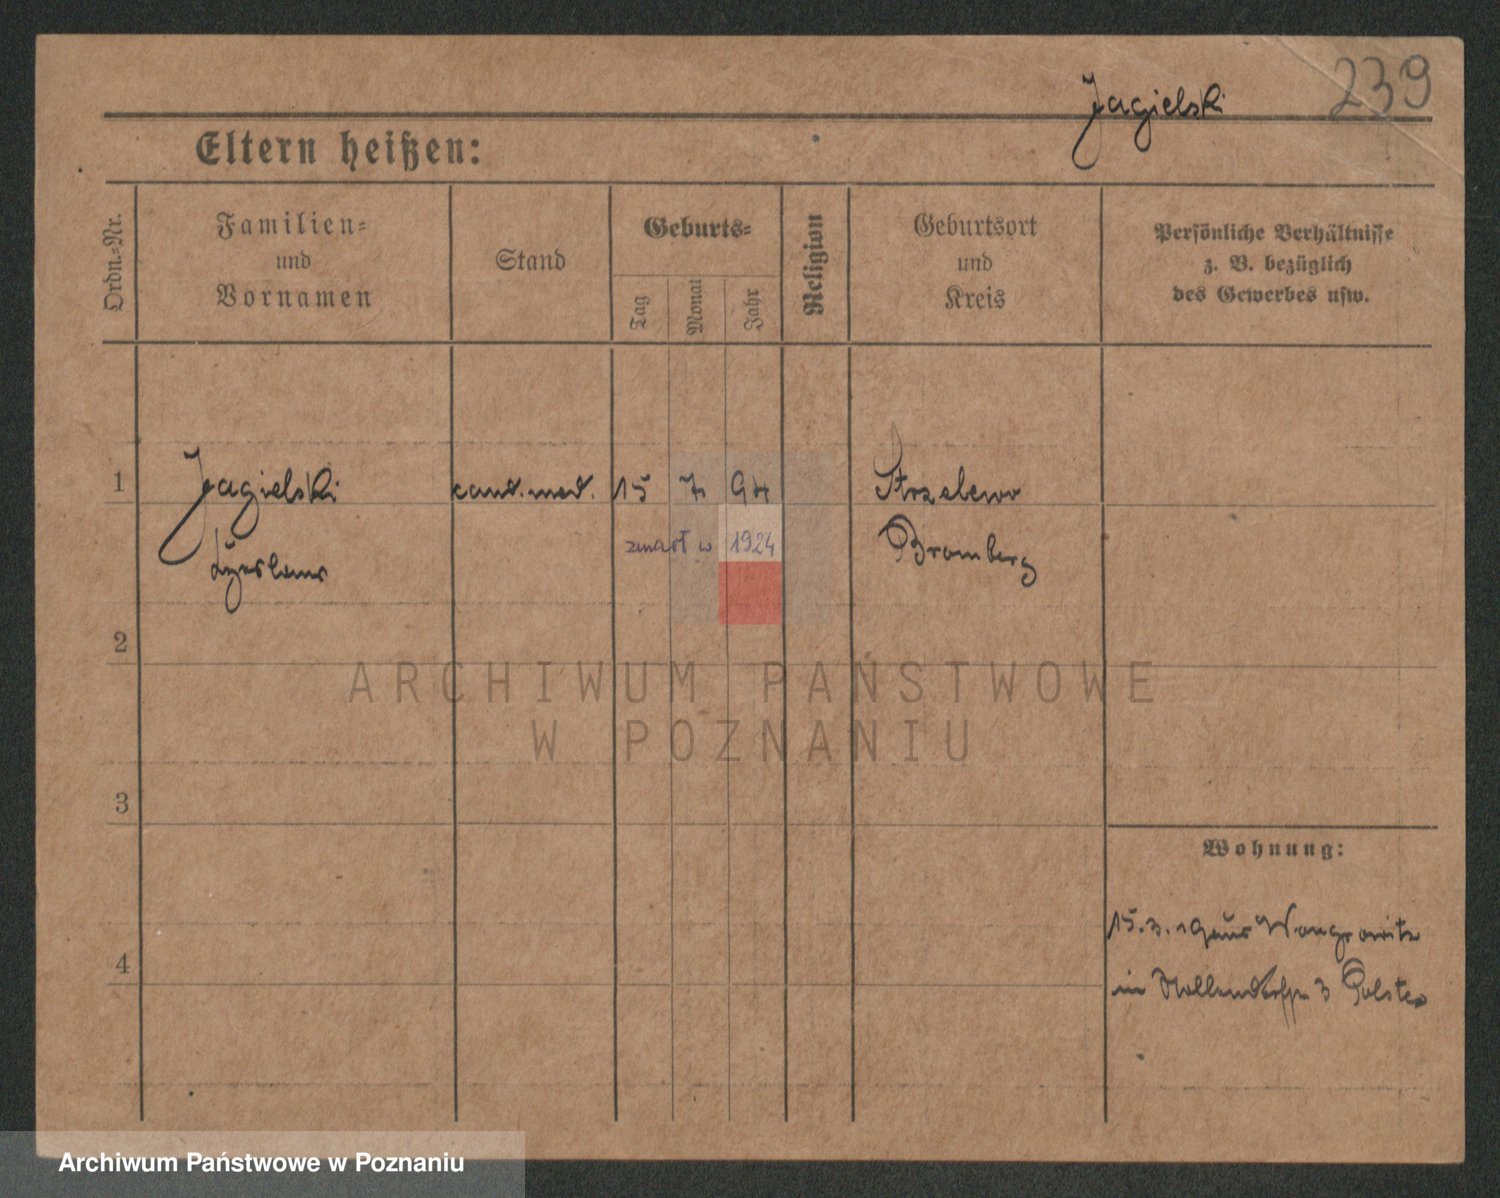 239
Jagielski
Eltern heißen:
Ordn.-Nr.
Familien-
und
Vornamen
Stand
Geburts-
Tag
Monat
Jahr
Religion
Geburtsort
und
Kreis
Persönliche Verhältnisse
z. B. bezüglich
des Gewerbes usw.
1
Jagielski
cand. med.
15
7
94
Strzelewo
zmarł w 1924
Bromberg
2
ARCHIWUM PAŃSTWOWE
W POZNANIU
3
Wohnung:
15. 3. 19 aus Wongrowitz
4
in 3
Archiwum Państwowe w Poznaniu